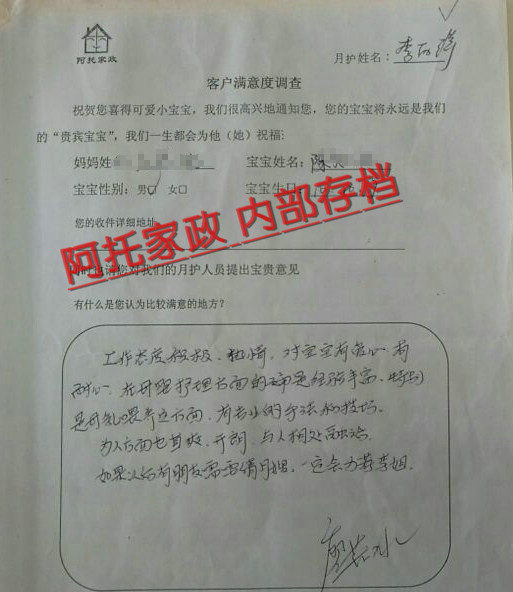 阿托家政
月护姓名：李
客户满意度调查
祝贺您喜得可爱小宝宝，我们很高兴地通知您，您的宝宝将永远是我们
的“贵宾宝宝”，我们一生都会为他（她）祝福：
妈妈姓 宝宝姓名：陈
宝宝性别：男□ 女□ 宝宝生日：
您的收件详细地址
阿托家政 内部存档
同时也请您对我们的月护人员提出宝贵意见
有什么是您认为比较满意的地方？
工作态度积极、热情，对宝宝有爱心、有
耐心，在母婴护理方面的确是经验丰富，特别
是母乳喂养这方面，有专业的手法和技巧。
为人方面也其、开朗，与人相处融洽
如果以后有朋友需要请月嫂，一定会力荐李姐。